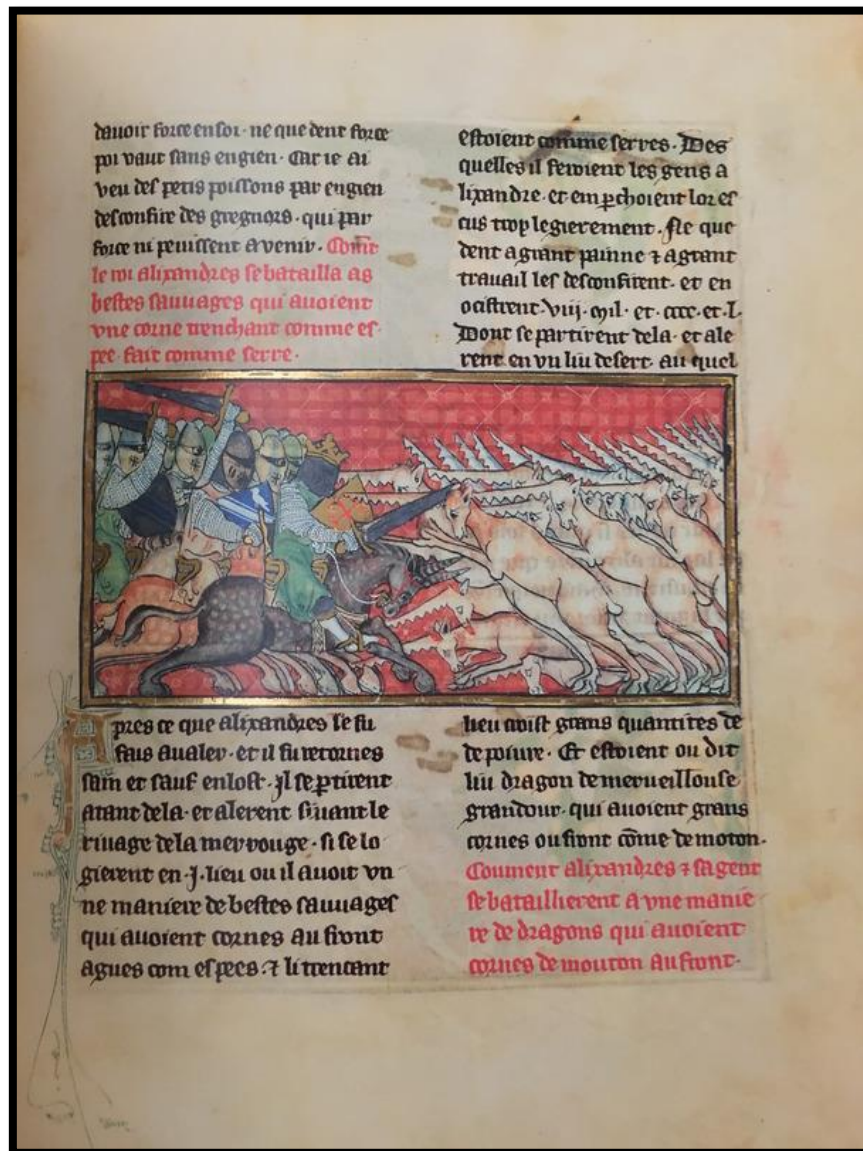 dauoir force en soi · ne que dent force
poi vaut sans engien · Car ie ai
veu des petis poissons par engien
desconfire des gregnors · qui par
force ni peuissent avenir · Coment
le roi alixandres se batailla as
bestes sauuages qui auoient
vne corne trenchant comme es
pee · fait comme serre ·
Apres ce que alixandres se fu
fais aualer · et il fu retornes
sain et sauf en lost · Il se ꝑtirent
atant dela · et alerent siuant le
riuage dela mer rouge · si se lo
gierent en · J · lieu ou il auoit vn
ne maniere de bestes sauuages
qui auoient cornes au front
agues com espees · ⁊ li trencant
estoient comme serres · Des
quelles il feroient les gens a
lixandre · et em ꝑchoient lor es
cus trop legierement · Ne que
dent a grant painne ⁊ a grant
trauail les desconfirent · et en
ocistrent · viij · mil · et · cccc · et · L ·
Dont se partirent dela · et ale
rent en vn liu desert · au quel
lieu croist grans quantites de
de poiure · Et estoient ou dit
liu dragon de merueillouse
grandour · qui auoient grans
cornes ou front cōme de moton ·
Coument alixandres ⁊ sa gent
se bataillierent a vne manie
re de dragons qui auoient
cornes de mouton au front ·